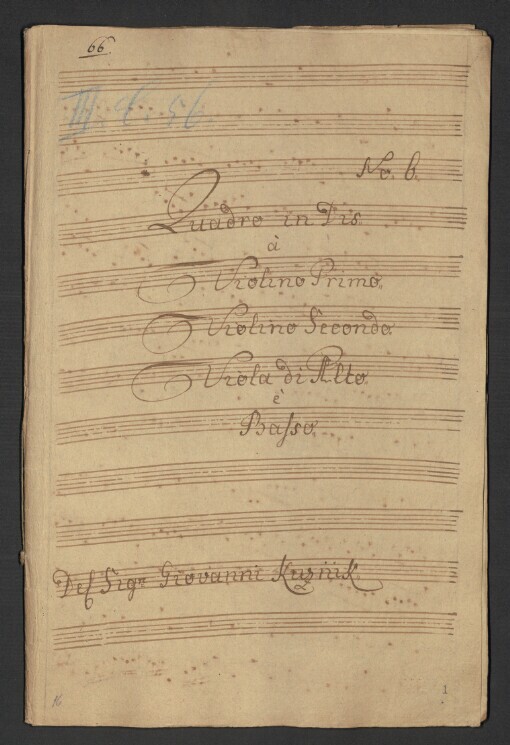 66.
III. 8. 56
No. 6.
Quadro in Dis.
à
Violino Primo.
Violino Secondo
Viola di Alto.
è
Basso.
Del Sigre Giovanni Kuznik
16
1